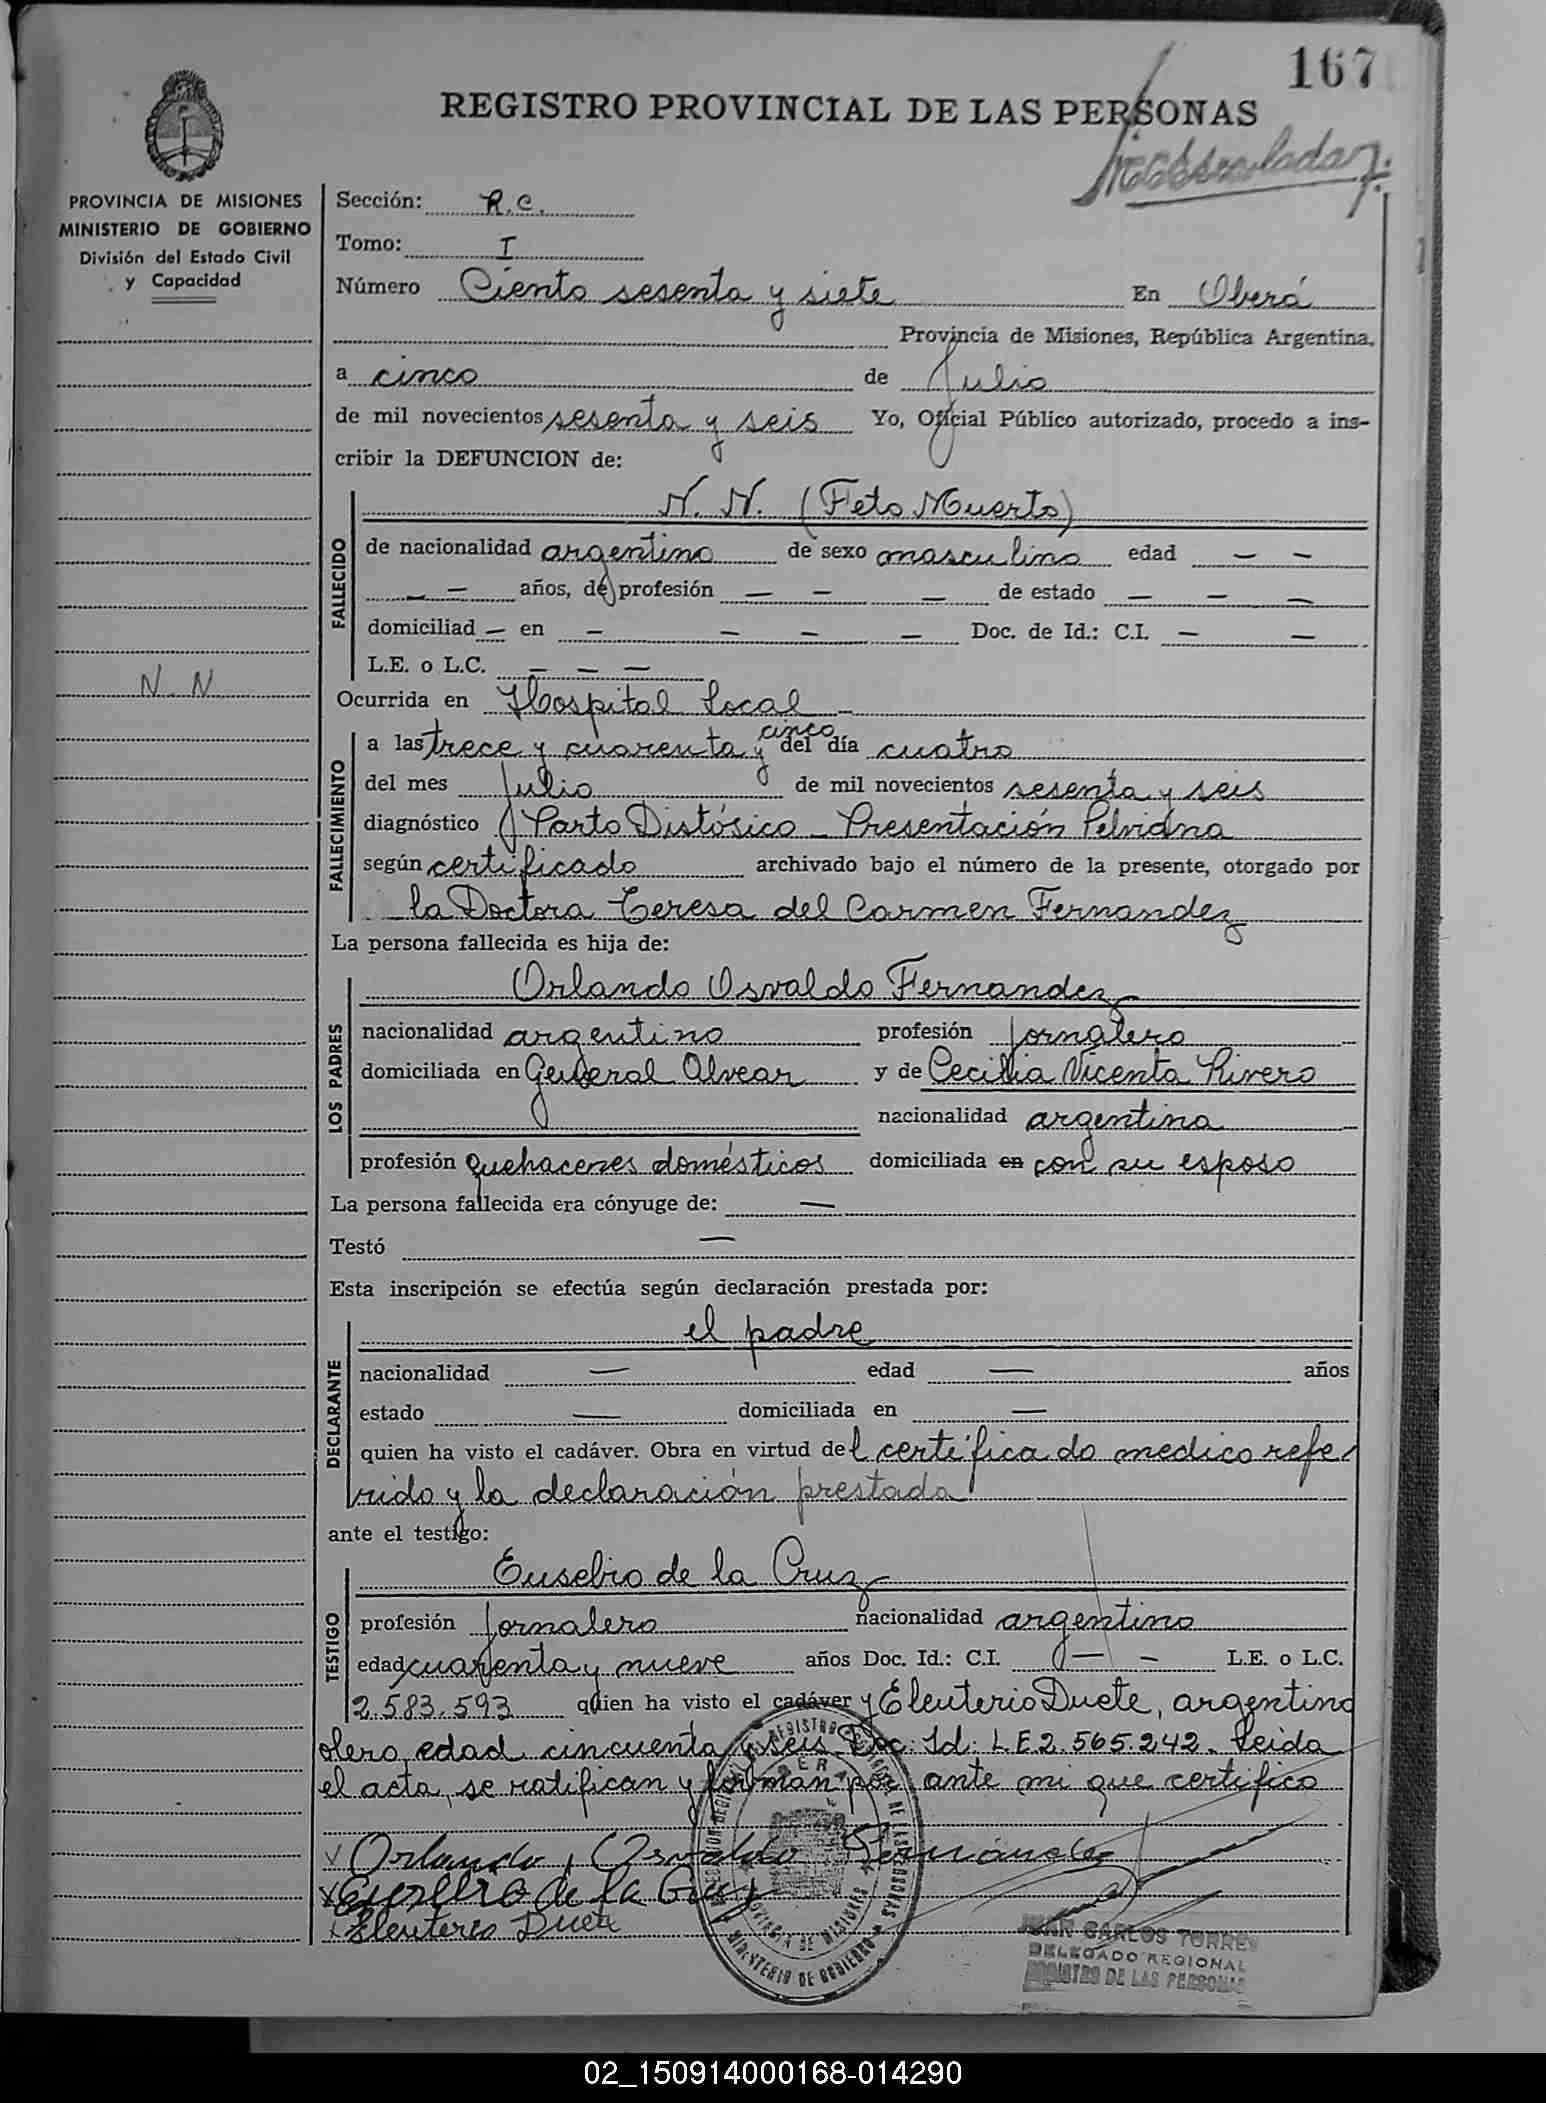 167
REGISTRO PROVINCIAL DE LAS PERSONAS
PROVINCIA DE MISIONES
MINISTERIO DE GOBIERNO
División del Estado Civil
y Capacidad
N N
Sección: R.C.
Tomo: I
Número Ciento sesenta y siete En Oberá
Provincia de Misiones, República Argentina,
a cinco de Julio
de mil novecientos sesenta y seis Yo, Oficial Público autorizado, procedo a ins-
cribir la DEFUNCION de:
FALLECIDO
N. N. (Feto Muerto)
de nacionalidad argentino de sexo masculino edad — —
— — años, de profesión — — — de estado — — —
domiciliad — en — — — — Doc. de Id.: C.I. — —
L.E. o L.C. — — —
Ocurrida en Hospital Local —
FALLECIMIENTO
a las trece y cuarenta y cinco del día cuatro
del mes Julio de mil novecientos sesenta y seis
diagnóstico Parto Distósico - Presentación Pelviana
según certificado archivado bajo el número de la presente, otorgado por
la Doctora Teresa del Carmen Fernandez
La persona fallecida es hija de:
LOS PADRES
Orlando Osvaldo Fernandez
nacionalidad argentino profesión jornalero
domiciliada en General Alvear y de Cecilia Vicenta Rivero
nacionalidad argentina
profesión quehaceres domésticos domiciliada en con su esposo
La persona fallecida era cónyuge de: —
Testó —
Esta inscripción se efectúa según declaración prestada por:
DECLARANTE
el padre
nacionalidad — edad — años
estado — domiciliada en —
quien ha visto el cadáver. Obra en virtud del certificado medico refe-
rido y la declaración prestada
ante el testigo:
TESTIGO
Eusebio de la Cruz
profesión jornalero nacionalidad argentino
edad cuarenta y nueve años Doc. Id.: C.I. — — L.E. o L.C.
2.583.593 quien ha visto el cadáver y Eleuterio Duete, argentino
olero, edad cincuenta y seis Doc: Id: L.E 2.565.242. Leida
el acta, se ratifican y forman por ante mi que certifico
Orlando Osvaldo Fernández
de la Cruz
Eleuterio Duete
MINISTERIO DE GOBIERNO
PROVINCIA DE MISIONES
JUAN CARLOS TORRES
DELEGADO REGIONAL
REGISTRO DE LAS PERSONAS
02_150914000168-014290